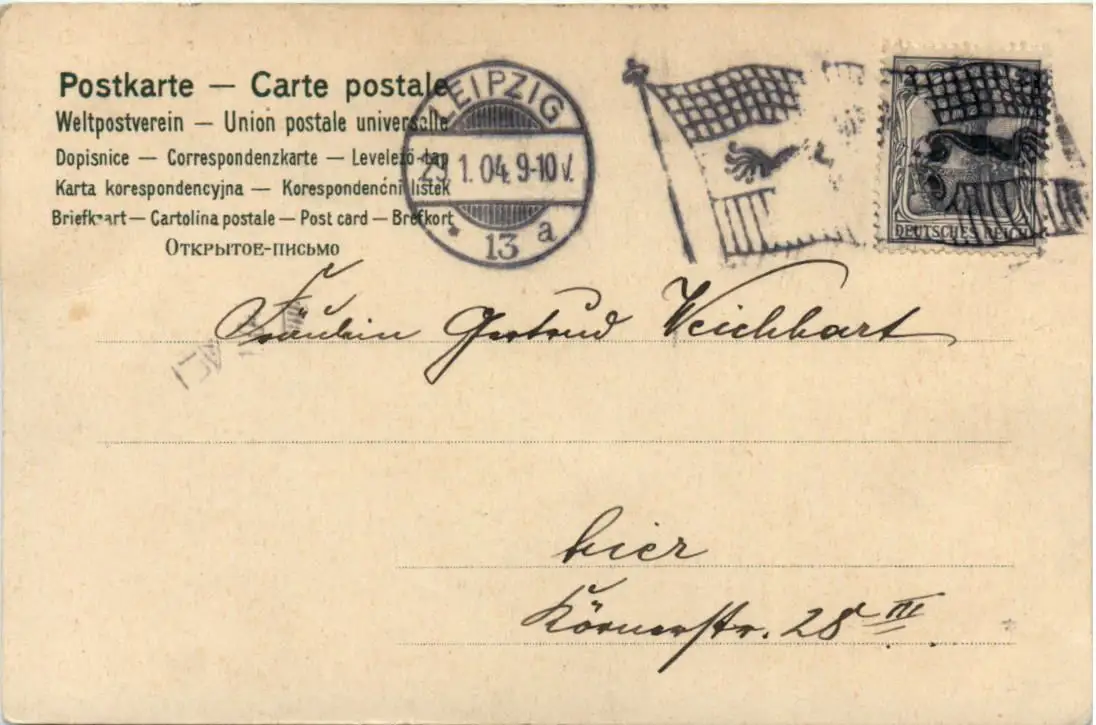 Postkarte — Carte postale
Weltpostverein — Union postale universelle
Dopisnice — Correspondenzkarte — Levelező-lap
Karta korespondencyjna — Korespondenćni listek
Briefkaart — Cartolina postale — Post card — Brefkort
Открытое-письмо
LEIPZIG
29.1.04. 9-10V.
* 13 a
DEUTSCHES REICH
Fräulein Gertrud Weichhart
hier
Körnerstr. 28 III